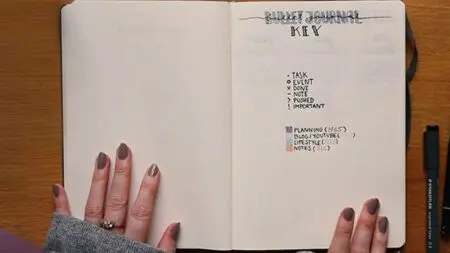 BULLET JOURNAL
KEY
• TASK
o EVENT
x DONE
– NOTE
> PUSHED
! IMPORTANT
PLANNING (
BLOG/YOUTUBE (
LIFESTYLE (
NOTES (
STAEDTLER